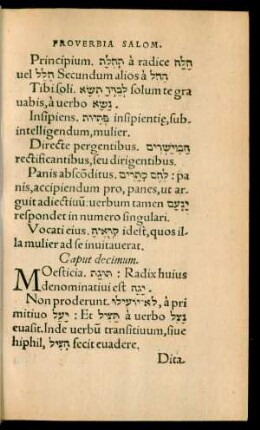 PROVERBIA SALOM.
Principium. תְּחִלַּת à radice חָלָה
uel חָלַל Secundum alios à הֵחֵל
Tibi soli. לְבַדְּךָ תִשָּׂא solum te gra
uabis, à uerbo נָשָׂא .
Insipiens. פְּתַיּוּת insipientię, sub
intelligendum, mulier.
Directe pergentibus. הַמְיַשְּׁרִים
rectificantibus, seu dirigentibus.
Panis abscōditus. לֶחֶם סְתָרִים : pa
nis, accipiendum pro, panes, ut ar
guit adiectiuū: uerbum tamen יִנְעָם
respondet in numero singulari.
Vocati eius. קְרֻאֶיהָ idest, quos il-
la mulier ad se inuitauerat.
Caput decimum.
MOesticia. תּוּגַת : Radix huius
denominatiui est יָגָה .
Non proderunt. לֹא־יוֹעִילוּ, à pri
mitiuo יָעַל : Et תַּצִּיל à uerbo נָצַל
euasit. Inde uerbū transitiuum, siue
hiphil, הִצִּיל fecit euadere.
Dita.